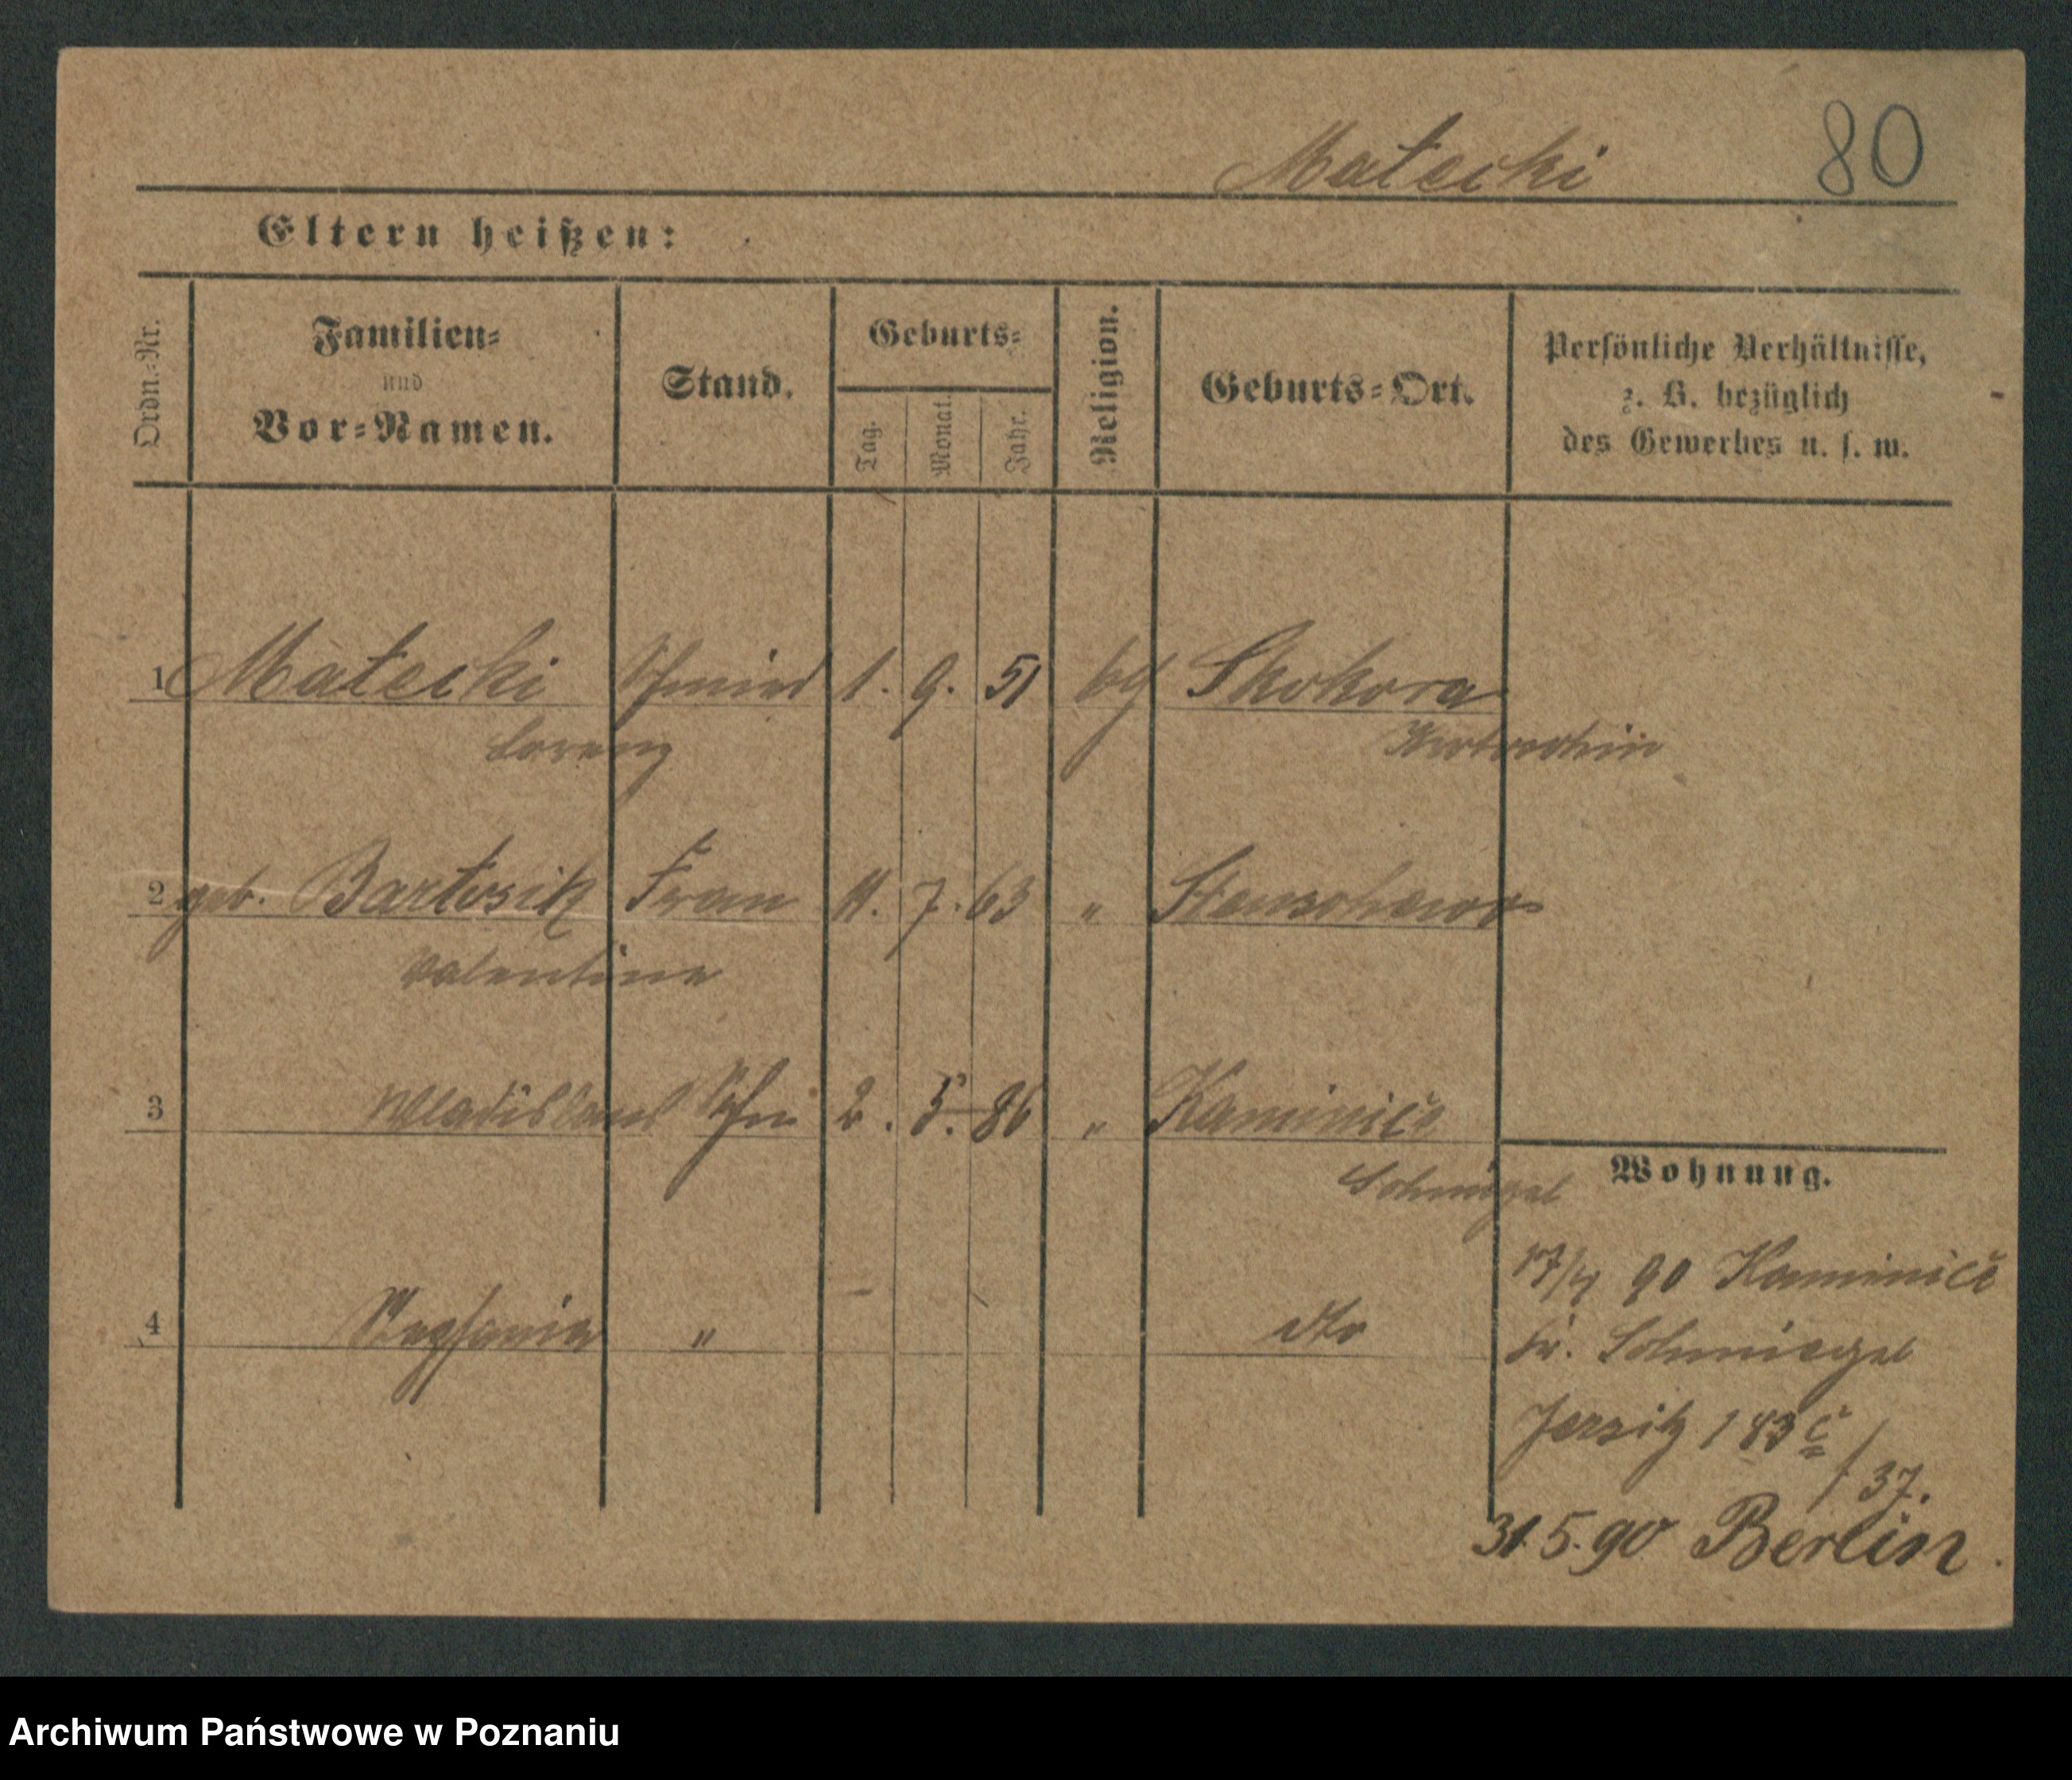 Matecki 80
Eltern heißen:
Ordn.-Nr.
Familien-
und
Vor-Namen.
Stand.
Geburts-
Tag.
Monat.
Jahr.
Religion.
Geburts-Ort.
Persönliche Verhältnisse,
z. B. bezüglich
des Gewerbes u. s. w.
1 Matecki Schmied 1. 9. 51 Skokora
Lorenz Krotoschin
2 geb. Bartosik Frau 11. 7. 63 "
Valentine
3 Wladislaus Sohn 2. 5. 86 " Kaminiec
Schmiegel
Wohnung.
4 " dto
17/4 90 Kaminiec
Kr. Schmiegel
Jersitz 183 c
/ 37.
31. 5. 90 Berlin.
Archiwum Państwowe w Poznaniu